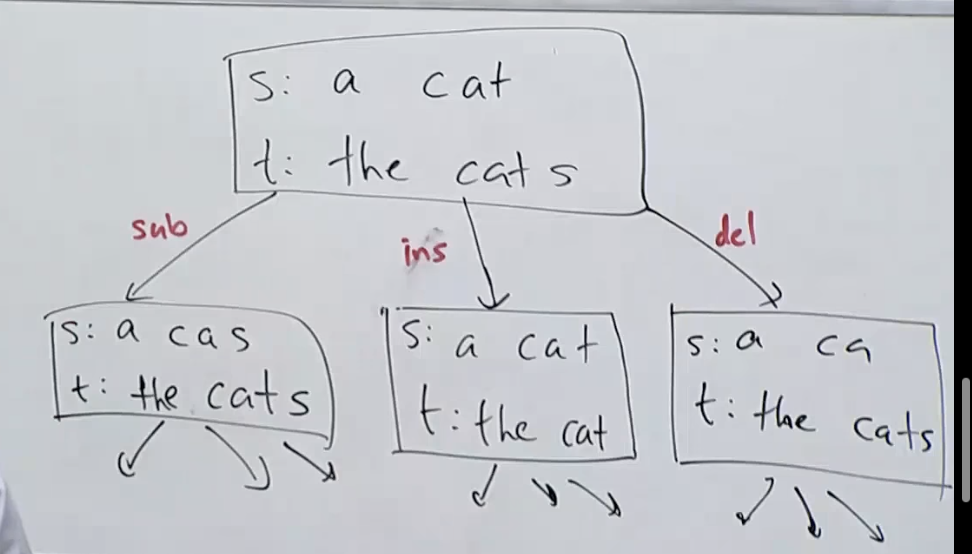 s: a cat
t: the cats
sub
ins
del
s: a cas
t: the cats
s: a cat
t: the cat
s: a ca
t: the cats